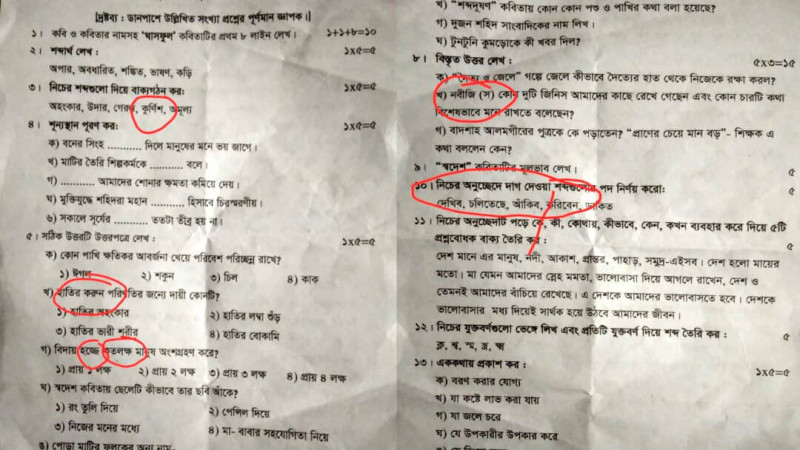 [দ্রষ্টব্য : ডানপাশে উল্লিখিত সংখ্যা প্রশ্নের পূর্ণমান জ্ঞাপক।]
১। কবি ও কবিতার নামসহ 'ঘাসফুল' কবিতাটির প্রথম ৮ লাইন লেখ। ১+১+৮=১০
২। শব্দার্থ লেখ : ১x৫=৫
অপার, অবধারিত, শঙ্কিত, ভাষণ, কড়ি
৩। নিচের শব্দগুলো দিয়ে বাক্যগঠন কর: ১x৫=৫
অহংকার, উদার, কুর্ণিশ, অমূল্য
৪। শূন্যস্থান পূরণ কর: ১x৫=৫
ক) বনের সিংহ ........... দিলে মানুষের মনে ভয় জাগে।
খ) মাটির তৈরি শিল্পকর্মকে .......... বলে।
গ) ........... আমাদের শোনার ক্ষমতা কমিয়ে দেয়।
ঘ) মুক্তিযুদ্ধে শহিদরা মহান .......... হিসাবে চিরস্মরণীয়।
ঙ) সকালে সূর্যের .......... ততটা তীব্র হয় না।
৫। সঠিক উত্তরটি উত্তরপত্রে লেখ : ১x৫=৫
ক) কোন পাখি ক্ষতিকর আবর্জনা খেয়ে পরিবেশ পরিচ্ছন্ন রাখে?
১) ঈগল ২) শকুন ৩) চিল ৪) কাক
খ) হাতির করুন পরিণতির জন্যে দায়ী কোনটি?
১) হাতির অহংকার ২) হাতির লম্বা শুঁড়
৩) হাতির ভারী শরীর ৪) হাতির বোকামি
গ) বিদায় হজ্জে কতলক্ষ মানুষ অংশগ্রহণ করে?
১) প্রায় ১ লক্ষ ২) প্রায় ২ লক্ষ ৩) প্রায় ৩ লক্ষ ৪) প্রায় ৪ লক্ষ
ঘ) স্বদেশ কবিতায় ছেলেটি কীভাবে তার ছবি আঁকে?
১) রং তুলি দিয়ে ২) পেন্সিল দিয়ে
৩) নিজের মনের মধ্যে ৪) মা- বাবার সহযোগিতা নিয়ে
ঙ) পোড়া মাটির ফলকের অন্য নাম-
খ) "শব্দদূষণ" কবিতায় কোন কোন পশু ও পাখির কথা বলা হয়েছে?
গ) দুজন শহিদ সাংবাদিকের নাম লিখ।
ঘ) টুনটুনি কুমড়োকে কী খবর দিল?
৮। বিস্তৃত উত্তর লেখ : ৫x৩=১৫
ক) "দৈত্য ও জেলে" গল্পে জেলে কীভাবে দৈত্যের হাত থেকে নিজেকে রক্ষা করল?
খ) নবীজি (স) কোন দুটি জিনিস আমাদের কাছে রেখে গেছেন এবং কোন চারটি কথা
বিশেষভাবে মনে রাখতে বলেছেন?
গ) বাদশাহ আলমগীরের পুত্রকে কে পড়াতেন? "প্রাণের চেয়ে মান বড়"- শিক্ষক এ
কথা বললেন কেন?
৯। "স্বদেশ" কবিতাটির মূলভাব লেখ। ৫
১০। নিচের অনুচ্ছেদে দাগ দেওয়া শব্দগুলোর পদ নির্ণয় করো: ৫
দেখিব, চলিতেছে, আঁকিব, করিবেন,
১১। নিচের অনুচ্ছেদটি পড়ে কে, কী, কোথায়, কীভাবে, কেন, কখন ব্যবহার করে দিয়ে ৫টি
প্রশ্নবোধক বাক্য তৈরি কর : ৫
দেশ মানে এর মানুষ, নদী, আকাশ, প্রান্তর, পাহাড়, সমুদ্র-এইসব। দেশ হলো মায়ের
মতো। মা যেমন আমাদের স্নেহ মমতা, ভালোবাসা দিয়ে আগলে রাখেন, দেশ ও
তেমনই আমাদের বাঁচিয়ে রেখেছে। এ দেশকে আমাদের ভালোবাসতে হবে। দেশকে
ভালোবাসার মধ্য দিয়েই সার্থক হয়ে উঠবে আমাদের জীবন।
১২। নিচের যুক্তবর্ণগুলো ভেঙ্গে লিখ এবং প্রতিটি যুক্তবর্ণ দিয়ে শব্দ তৈরি কর : ৫
১৩। এককথায় প্রকাশ কর : ১x৫=৫
ক) বরণ করার যোগ্য
খ) যা কষ্টে লাভ করা যায়
গ) যা জলে চরে
ঘ) যে উপকারীর উপকার করে